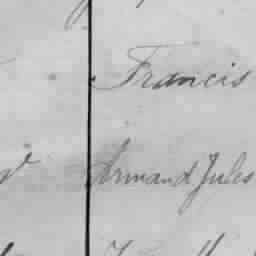 Francis
Armand Jules